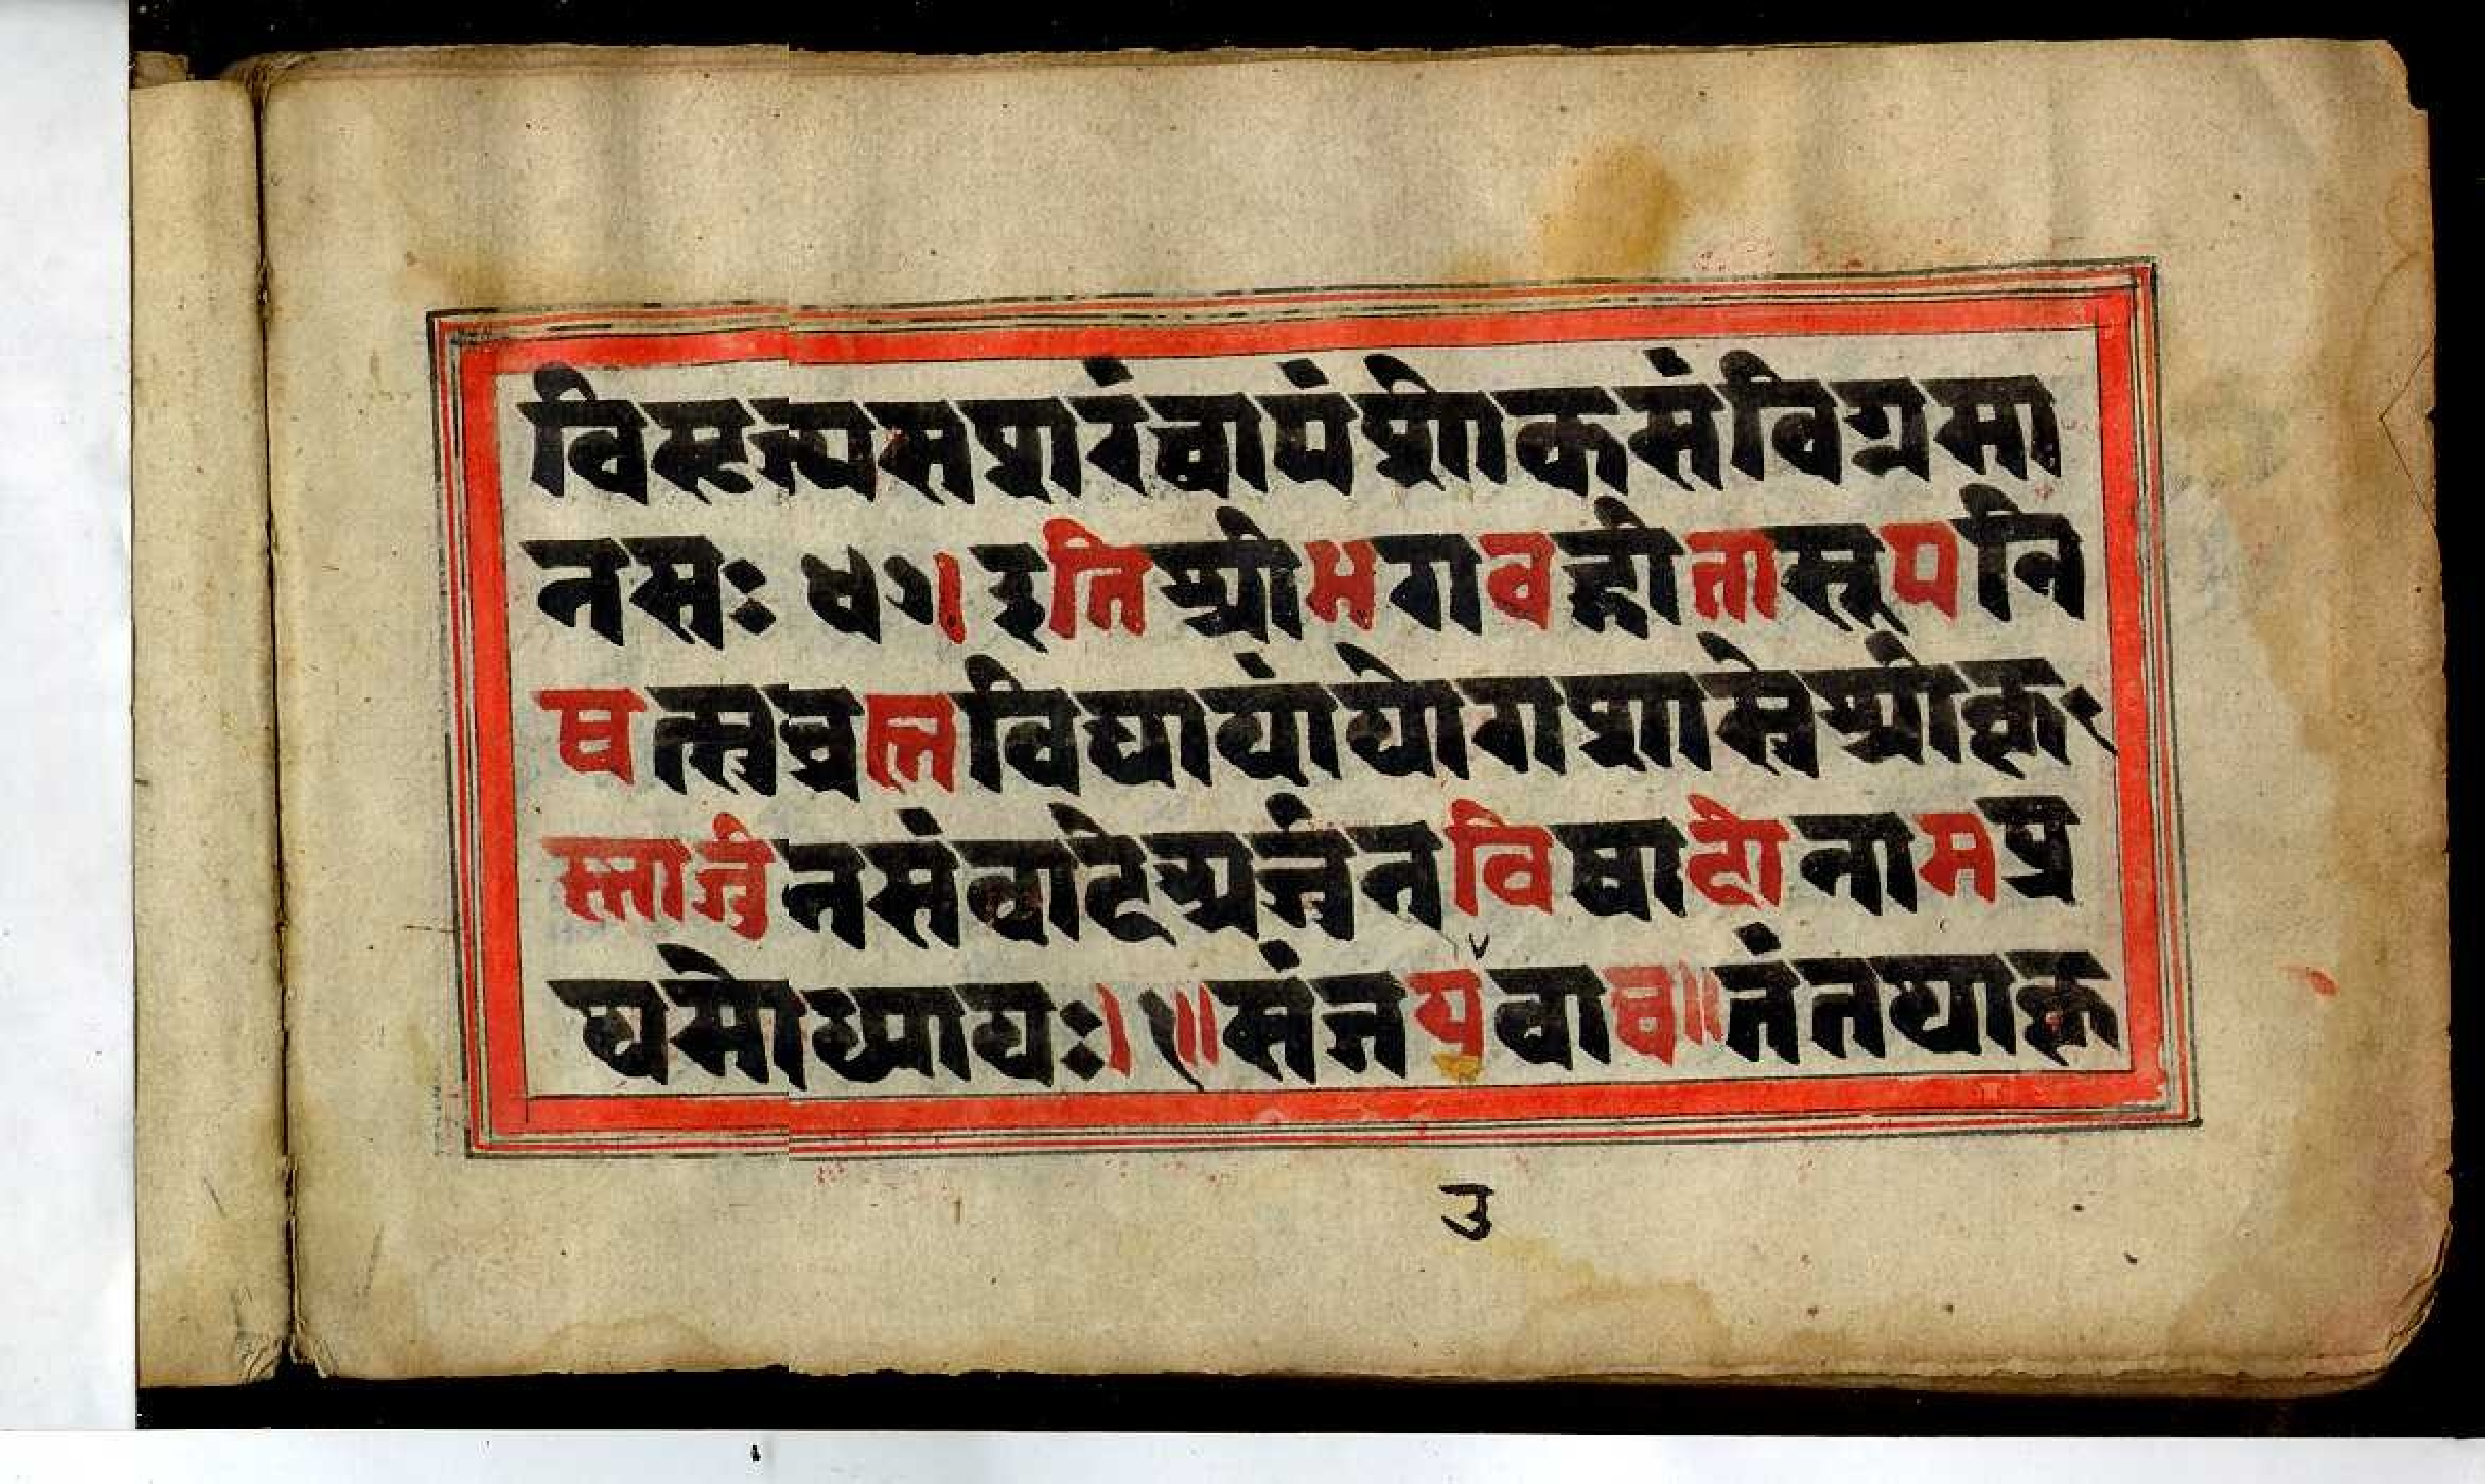 विसृज्यसशरंचापंशोकसंविग्नमा
नसः ४७। इतिश्रीभगवद्गीतासूपनि
षत्सुब्रह्मविद्यायांयोगशास्त्रेश्रीकृ
ष्णार्जुनसंवादेअर्जुनविषादोनामप्र
थमोध्यायः।१॥संजयउवाच॥तंतथाकृ